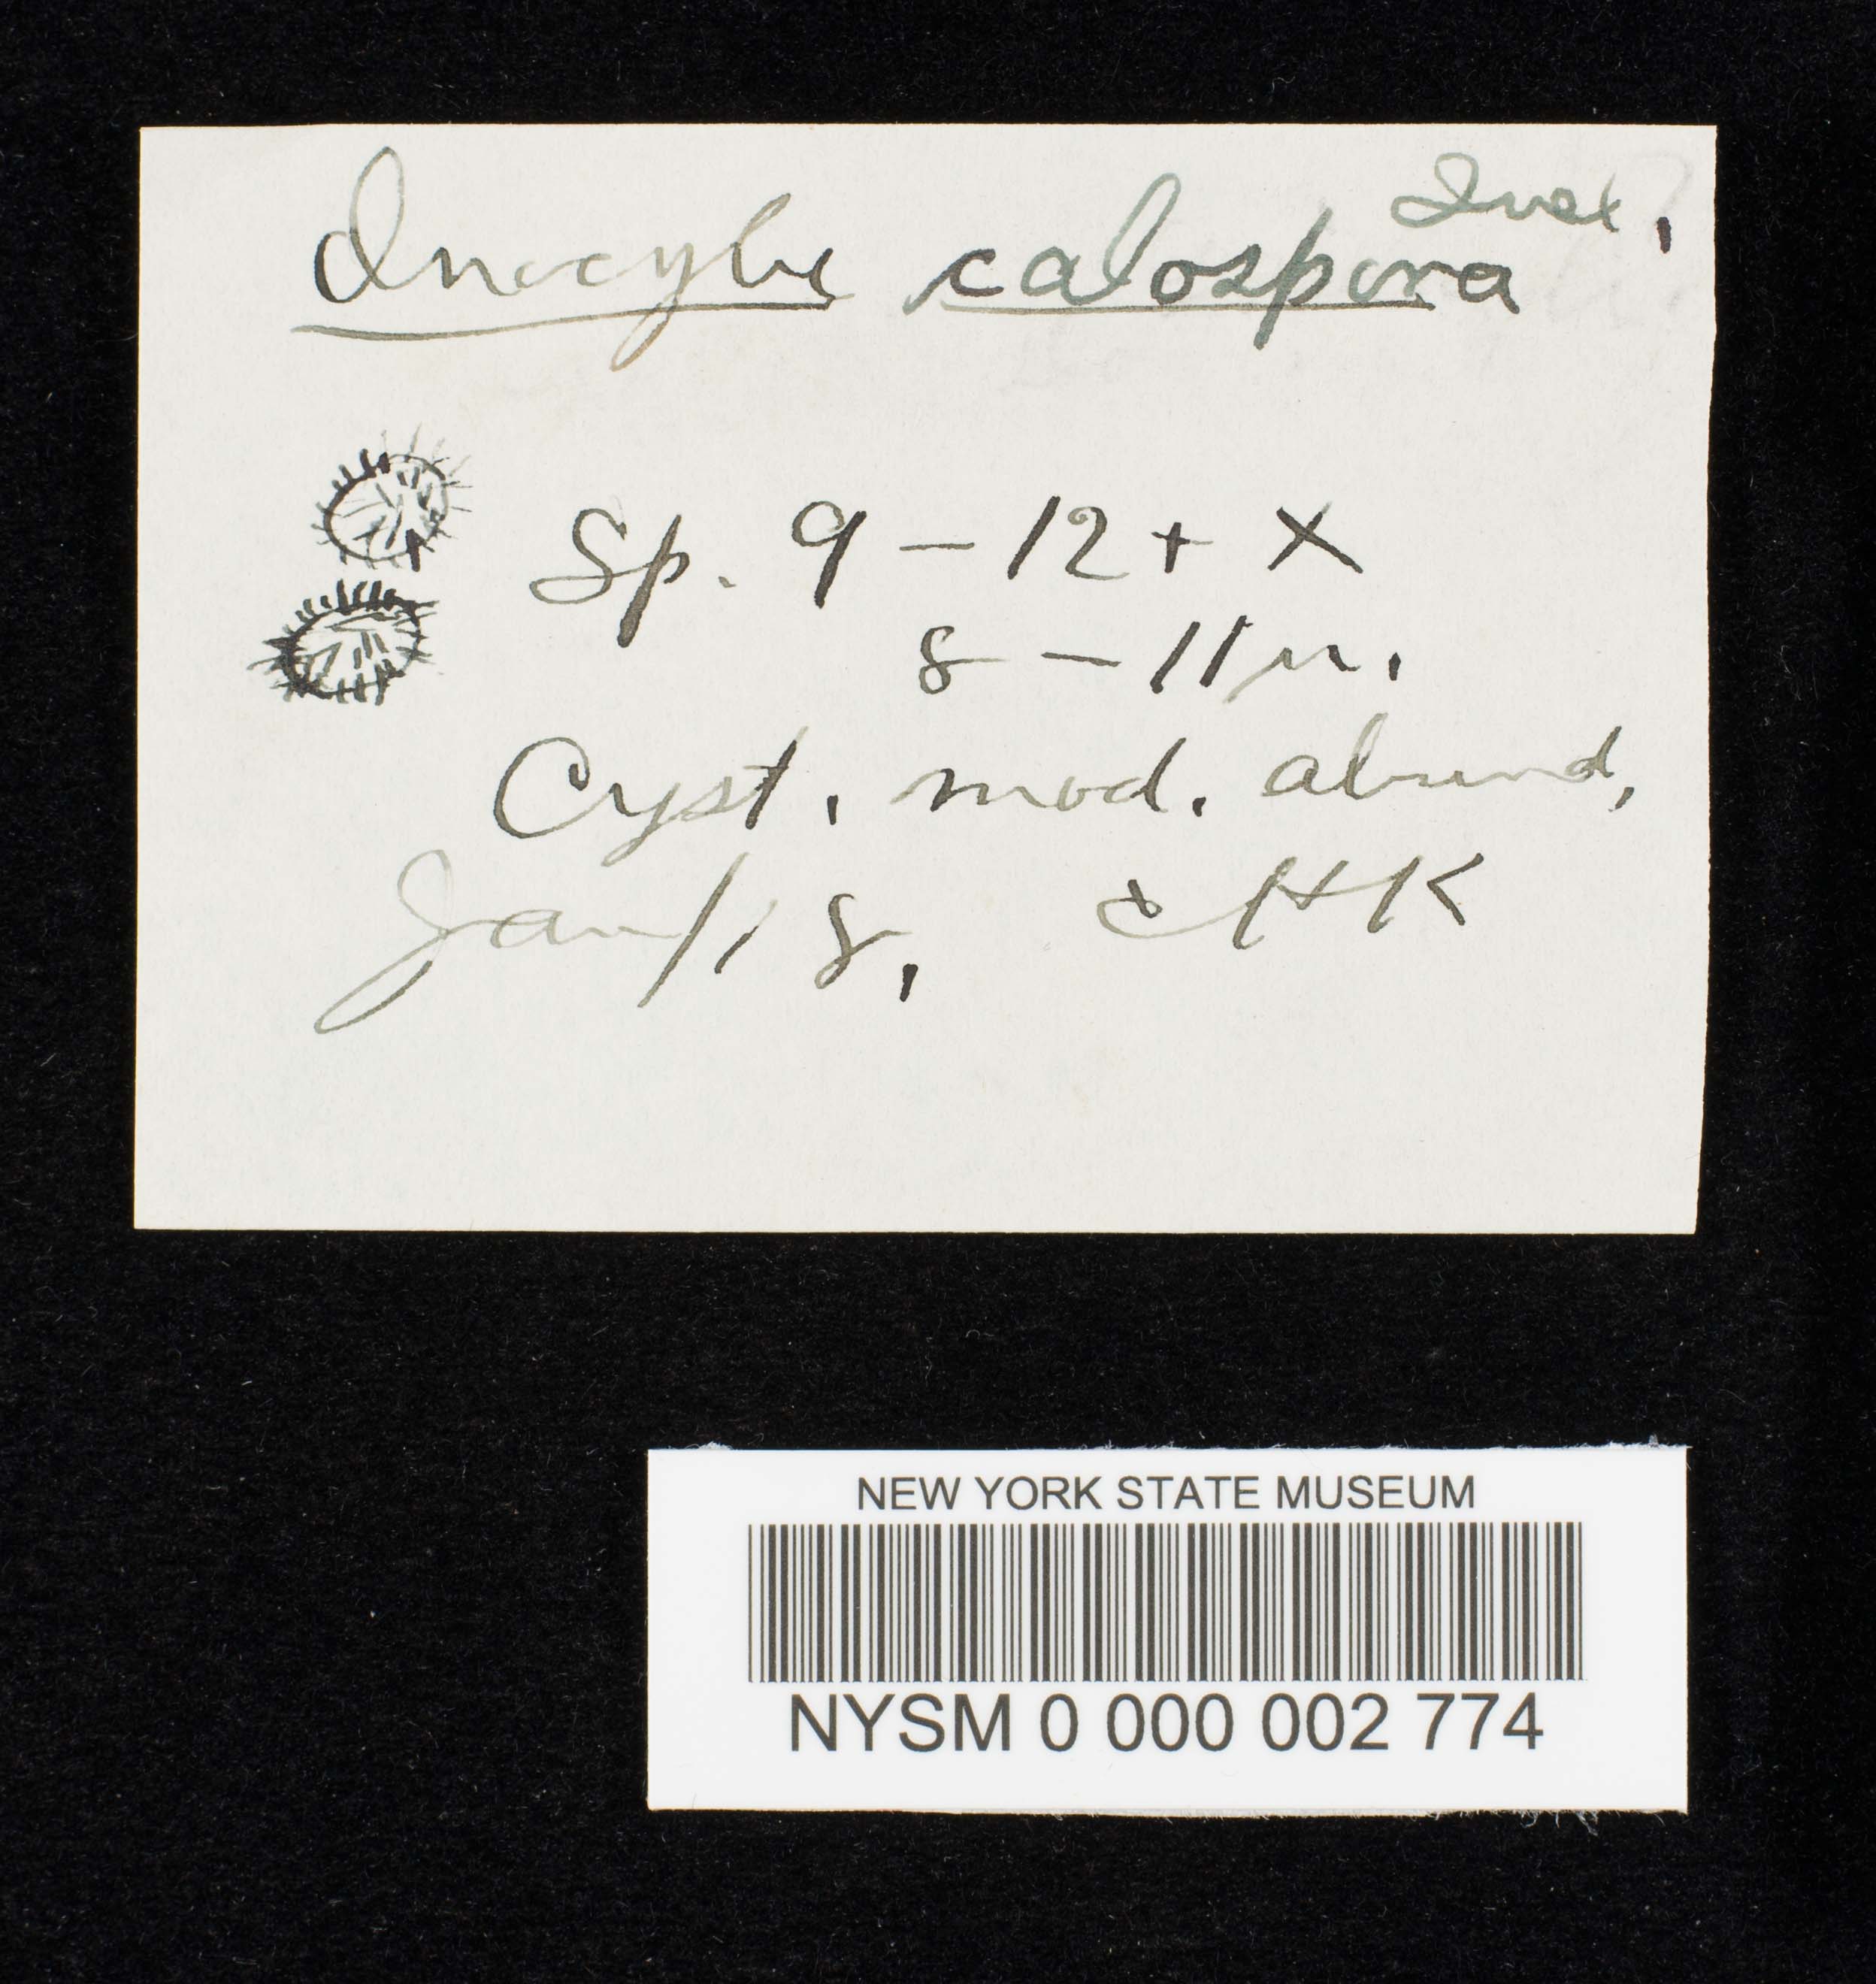 Quel.
Inocybe calospora
Sp. 9 – 12 + X
8 – 11 µ.
Cyst. mod. abund.
Jan/18. CHK
NEW YORK STATE MUSEUM
NYSM 0 000 002 774